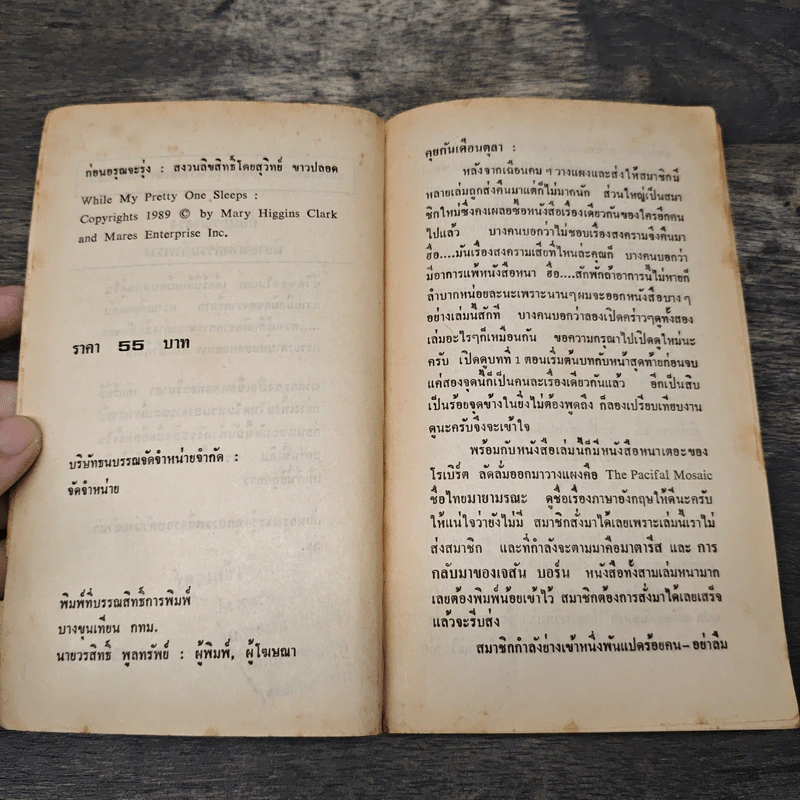 ก่อนอรุณจะรุ่ง : สงวนลิขสิทธิ์โดยสุวิทย์ ขาวปลอด
While My Pretty One Sleeps :
Copyrights 1989 © by Mary Higgins Clark
and Mares Enterprise Inc.
ราคา 55 บาท
บริษัทธนบรรณจัดจำหน่ายจำกัด :
จัดจำหน่าย
พิมพ์ที่บรรณสิทธิ์การพิมพ์
บางขุนเทียน กทม.
นายวรสิทธิ์ พูลทรัพย์ : ผู้พิมพ์, ผู้โฆษณา
คุยกันเดือนตุลา :
หลังจากเฉือนคม ๆ วางแผงและส่งให้สมาชิกมี
หลายเล่มถูกส่งคืนมาแต่ก็ไม่มากนัก ส่วนใหญ่เป็นสมา
ชิกใหม่ซึ่งคงเผลอซื้อหนังสือเรื่องเดียวกันของใครอีกคน
ไปแล้ว บางคนบอกว่าไม่ชอบเรื่องสงครามจึงคืนมา
ฮื่อ....มันเรื่องสงครามเสียที่ไหนล่ะคุณก็ บางคนบอกว่า
มีอาการแพ้หนังสือหนา ฮื่อ....สักพักถ้าอาการนี้ไม่หายก็
ลำบากหน่อยละนะเพราะนานๆผมจะออกหนังสือบางๆ
อย่างเล่มนี้สักที บางคนบอกว่าลองเปิดคร่าวๆดูทั้งสอง
เล่มอะไรๆก็เหมือนกัน ขอความกรุณาไปเปิดดูใหม่นะ
ครับ เปิดดูบทที่ 1 ตอนเริ่มต้นบทกับหน้าสุดท้ายก่อนจบ
แค่สองจุดนี้ก็เป็นคนละเรื่องเดียวกันแล้ว อีกเป็นสิบ
เป็นร้อยจุดข้างในยิ่งไม่ต้องพูดถึง ก็ลองเปรียบเทียบงาน
ดูนะครับจึงจะเข้าใจ
พร้อมกับหนังสือเล่มนี้ก็มีหนังสือหนาเตอะของ
โรเบิร์ต ลัดลั่มออกมาวางแผงคือ The Pacifal Mosaic
ชื่อไทยมายามรณะ ดูชื่อเรื่องภาษาอังกฤษให้ดีนะครับ
ให้แน่ใจว่ายังไม่มี สมาชิกสั่งมาได้เลยเพราะเล่มนี้เราไม่
ส่งสมาชิก และที่กำลังจะตามมาคือมาตารีส และ การ
กลับมาของเจสัน บอร์น หนังสือทั้งสามเล่มหนามาก
เลยต้องพิมพ์น้อยเข้าไว้ สมาชิกต้องการสั่งมาได้เลยเสร็จ
แล้วจะรีบส่ง
สมาชิกกำลังย่างเข้าหนึ่งพันแปดร้อยคน–อย่าลืม